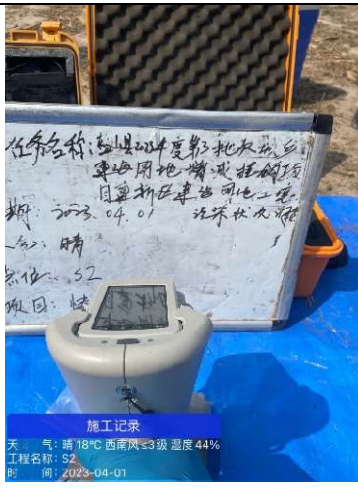 任务名称:盘山县2023年度第3批次城乡
建设用地增减挂钩项
目建新区建设用地土壤
期: 2023.04.01 污染状况调查
晴
点位: S2
项目: 快
施工记录
天 气: 晴 18℃ 西南风 ≤3级 湿度 44%
工程名称: S2
时 间: 2023-04-01